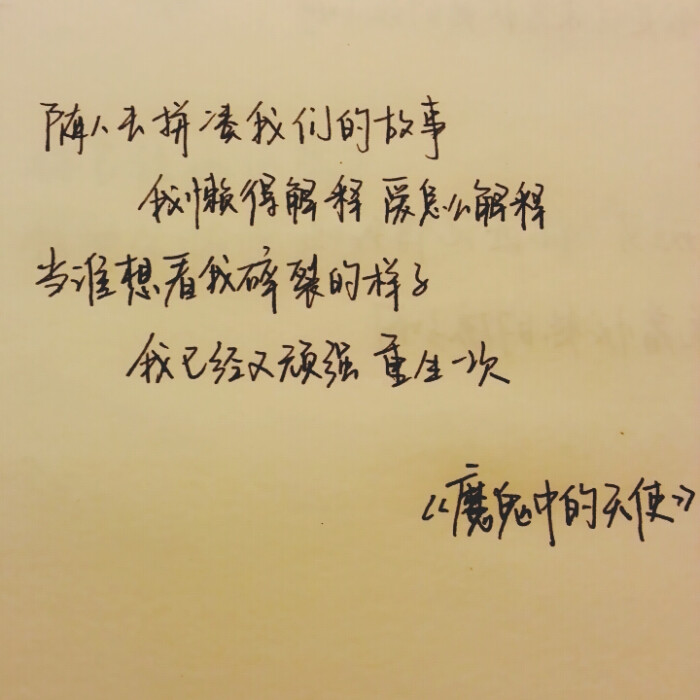 随人去拼凑我们的故事
我懒得解释 爱怎么解释
当谁想看我碎裂的样子
我已经又顽强 重生一次
《魔鬼中的天使》